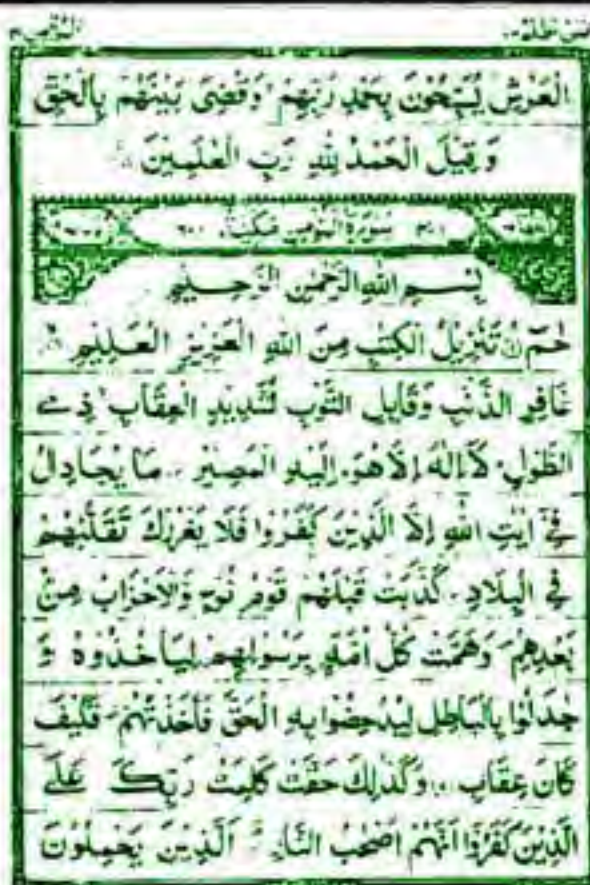 فمن اظلم ٢٤
المؤمن ٤٠
الْعَرْشِ يُسَبِّحُوْنَ بِحَمْدِ رَبِّهِمْ وَقُضِىَ بَيْنَهُمْ بِالْحَقِّ
وَقِيْلَ الْحَمْدُ لِلّٰهِ رَبِّ الْعٰلَمِيْنَ
سُوْرَةُ الْمُؤْمِنِ مَكِّيَّةٌ
بِسْمِ اللهِ الرَّحْمٰنِ الرَّحِيْمِ
حٰمٓ تَنْزِيْلُ الْكِتٰبِ مِنَ اللهِ الْعَزِيْزِ الْعَلِيْمِ
غَافِرِ الذَّنْبِ وَقَابِلِ التَّوْبِ شَدِيْدِ الْعِقَابِ ذِى
الطَّوْلِ لَآ اِلٰهَ اِلَّا هُوَ اِلَيْهِ الْمَصِيْرُ مَا يُجَادِلُ
فِىْٓ اٰيٰتِ اللهِ اِلَّا الَّذِيْنَ كَفَرُوْا فَلَا يَغْرُرْكَ تَقَلُّبُهُمْ
فِى الْبِلَادِ كَذَّبَتْ قَبْلَهُمْ قَوْمُ نُوْحٍ وَّالْاَحْزَابُ مِنْۢ
بَعْدِهِمْ وَهَمَّتْ كُلُّ اُمَّةٍۭ بِرَسُوْلِهِمْ لِيَاْخُذُوْهُ وَ
جٰدَلُوْا بِالْبَاطِلِ لِيُدْحِضُوْا بِهِ الْحَقَّ فَاَخَذْتُهُمْ فَكَيْفَ
كَانَ عِقَابِ وَكَذٰلِكَ حَقَّتْ كَلِمَتُ رَبِّكَ عَلَى
الَّذِيْنَ كَفَرُوْٓا اَنَّهُمْ اَصْحٰبُ النَّارِ اَلَّذِيْنَ يَحْمِلُوْنَ